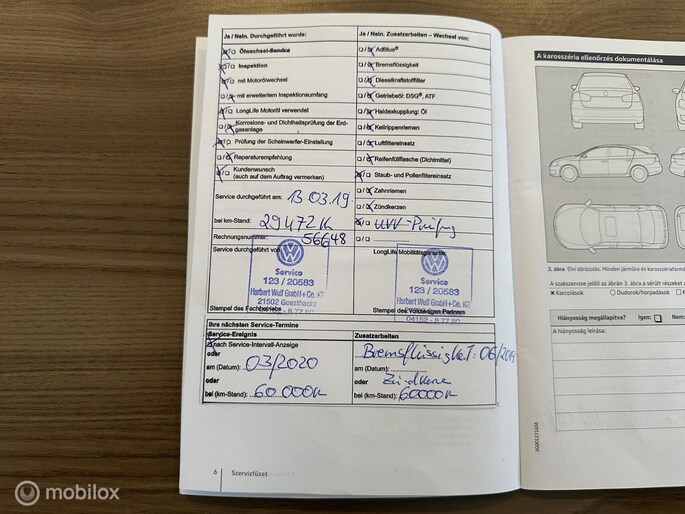 Ja / Nein. Durchgeführt wurde:
Ölwechsel-Service
Inspektion
mit Motorölwechsel
mit erweitertem Inspektionsumfang
LongLife Motoröl verwendet
Korrosions- und Dichtheitsprüfung der Erd-
gasanlage
Prüfung der Scheinwerfer-Einstellung
Reparaturempfehlung
Kundenwunsch
(auch auf dem Auftrag vermerken)
Service durchgeführt am: 13.03.19
bei km-Stand: 29472 K
Rechnungsnummer: 56648
Service durchgeführt von
Service
123 / 20583
Herbert Wulf GmbH + Co. KG
21502 Geesthacht
Stempel des Fachbetriebs
Ja / Nein. Zusatzarbeiten – Wechsel von:
AdBlue®
Bremsflüssigkeit
Dieselkraftstofffilter
Getriebeöl: DSG®, ATF
Haldexkupplung: Öl
Keilrippenriemen
Luftfiltereinsatz
Reifenfüllflasche (Dichtmittel)
Staub- und Pollenfiltereinsatz
Zahnriemen
Zündkerzen
UVV-Prüfung
LongLife Mobilitätsgarantie:
Service
123 / 20583
Herbert Wulf GmbH + Co. KG
Stempel des Volkswagen Partners
Ihre nächsten Service-Termine
Service-Ereignis
nach Service-Intervall-Anzeige
oder
am (Datum): 03/2020
oder
bei (km-Stand): 60.000 K
Zusatzarbeiten
Bremsflüssigkeit: 06/2019
am (Datum):
oder
bei (km-Stand): 60000 K
6
Szervizfüzet
A karosszéria ellenőrzés dokumentálása
3. ábra Elvi ábrázolás. Minden járműre és karosszériaformá
A szakszervize jelöli az ábrán 3. ábra a sérült részeket a
Karcolások
Dudorok/horpadások
Hiányosság megállapítva? Igen: Nem:
A hiányosság leírása:
mobilox